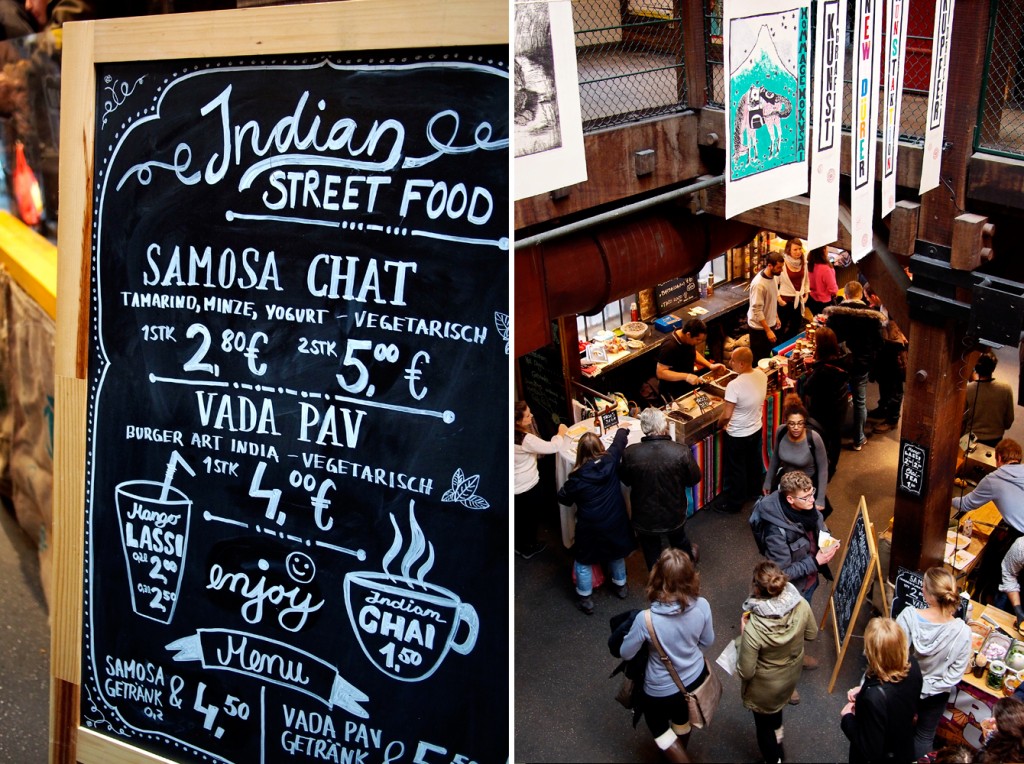 Indian
STREET FOOD
SAMOSA CHAT
TAMARIND, MINZE, YOGURT - VEGETARISCH
1STK 2,80€ 2STK 5,00€
VADA PAV
BURGER ART INDIA - VEGETARISCH
1STK 4,00€
Mango
LASSI
0,2l 2,00
2,50
enjoy
Indian
CHAI
1,50
Menu
SAMOSA &
GETRÄNK 4,50
0,2
VADA PAV
GETRÄNK &
KUNST
NEW DÜRER